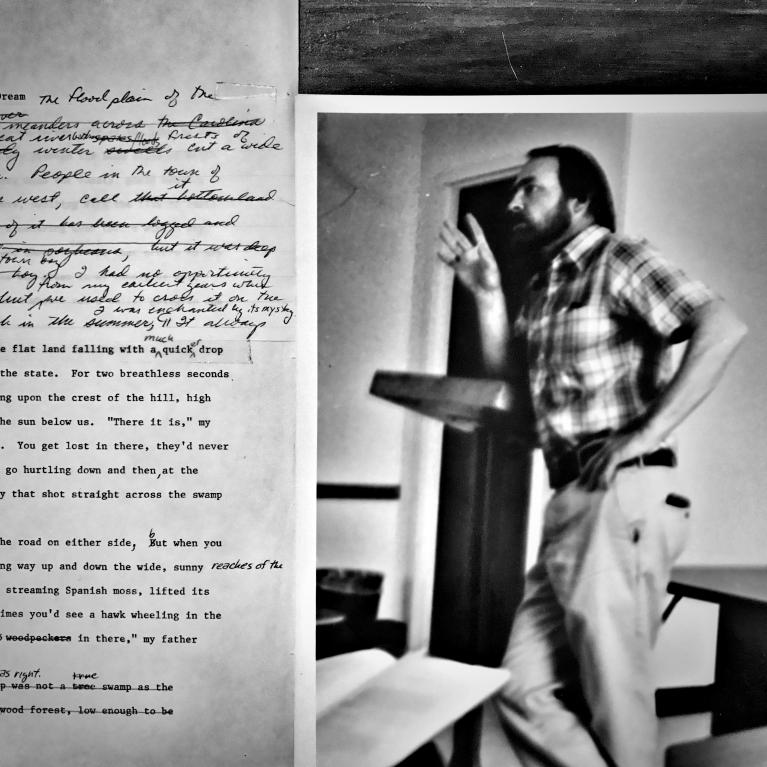 Dream The flood plain of the
over
meanders across the Carolina
eat river both forests of
ly winter swells cut a wide
. People in the town of
it
west, call that bottomland
of it has been logged and
in soybeans, but it was deep
town boy
boy I had no opportunity
from my earliest years when
but we used to cross it on the
I was enchanted by its mystery
h in the summer, It always
much
e flat land falling with a quicker drop
the state. For two breathless seconds
ng upon the crest of the hill, high
he sun below us. "There it is," my
. You get lost in there, they'd never
go hurtling down and then, at the
y that shot straight across the swamp
he road on either side, But when you
ng way up and down the wide, sunny reaches of the
streaming Spanish moss, lifted its
imes you'd see a hawk wheeling in the
woodpeckers in there," my father
as right. true
p was not a true swamp as the
wood forest, low enough to be